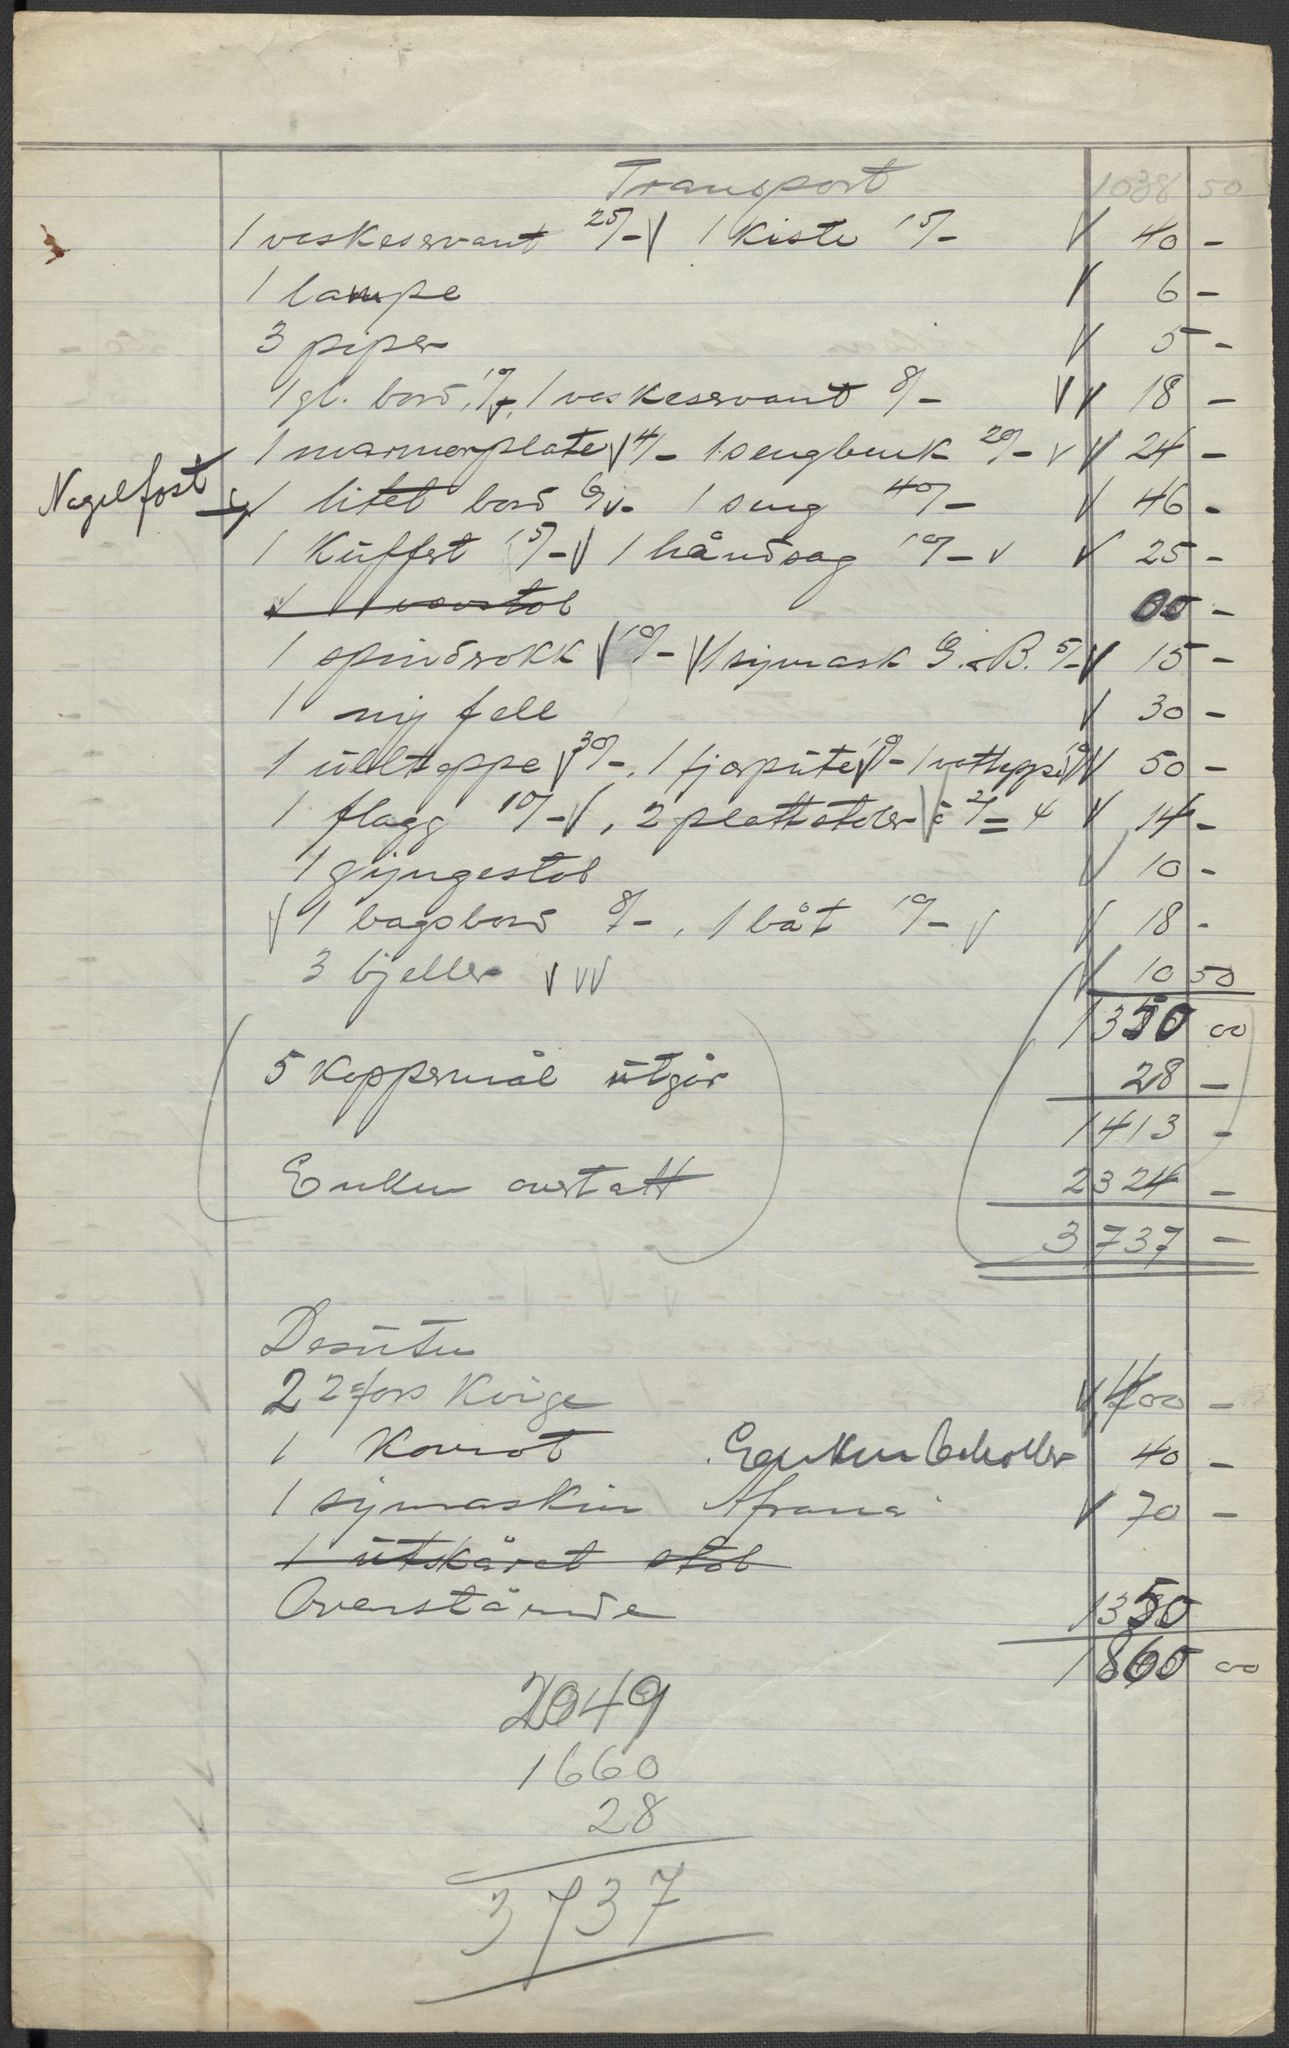 Transport 1038 50
1 vaskeservant 25/- 1 kiste 15/- 40 -
1 lampe 6 -
3 piper 5 -
1 gl. bord, 10/-, 1 vaskeservant 8/- 18 -
1 marmorplate 4/- 1 sengbenk 20/- 24 -
Nagelfast 1 litet bord 6/- 1 seng 40/- 46 -
1 Kuffert 15/- 1 håndsag 10/- 25 -
1 vevstol 00 -
1 spindrokk 10/- 1 symask G. B. 5/- 15 -
1 ny fell 30 -
1 ullteppe 30/-, 1 fjærpute 10/- 1 vatteppe 10/- 50 -
1 flagg 10/-, 2 plattstoler à 2/- = 4 14 -
1 gyngestol 10 -
1 bagsbord 8/-, 1 båt 10/- 18 -
3 bjeller 10 50
1350 00
5 koppermål utgår 28 -
1413 -
Enken avstått 2324 -
3737 -
Desuten
2 2 års kvige 400 -
1 Komot Enken beholder 40 -
1 symaskin 70 -
1 utskåret stol
Ovenstående 1350
1860 00
2049
1660
28
3737